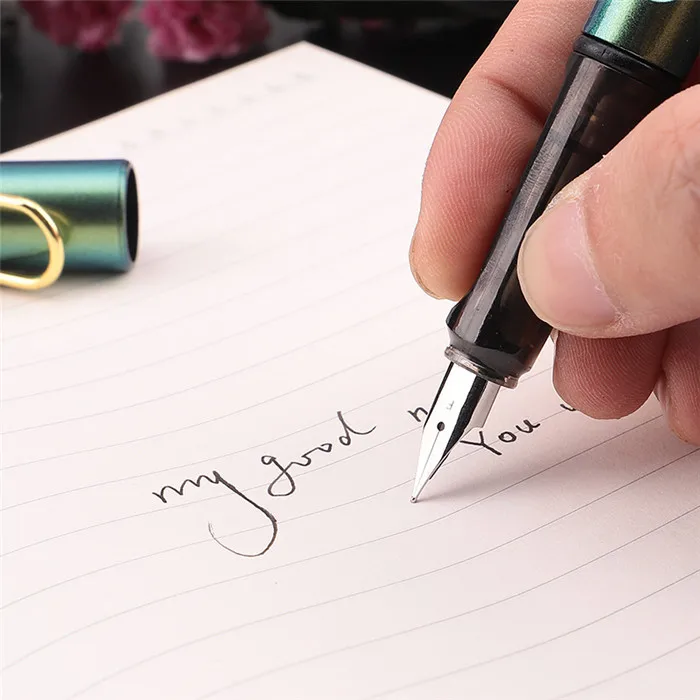 my good n You